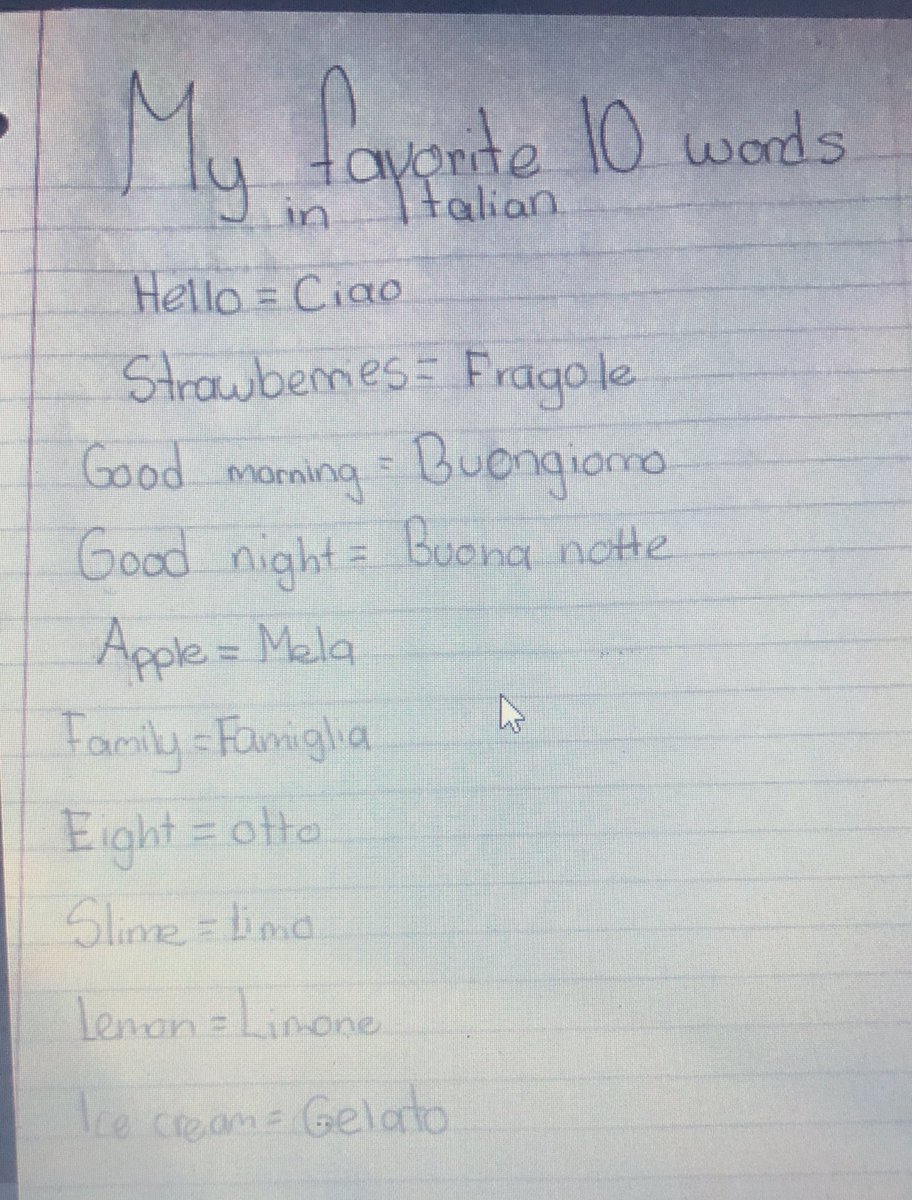 My favorite 10 words
in Italian
Hello = Ciao
Strawberries = Fragole
Good morning = Buongiorno
Good night = Buona notte
Apple = Mela
Family = Famiglia
Eight = otto
Slime = Limo
Lemon = Limone
Ice cream = Gelato